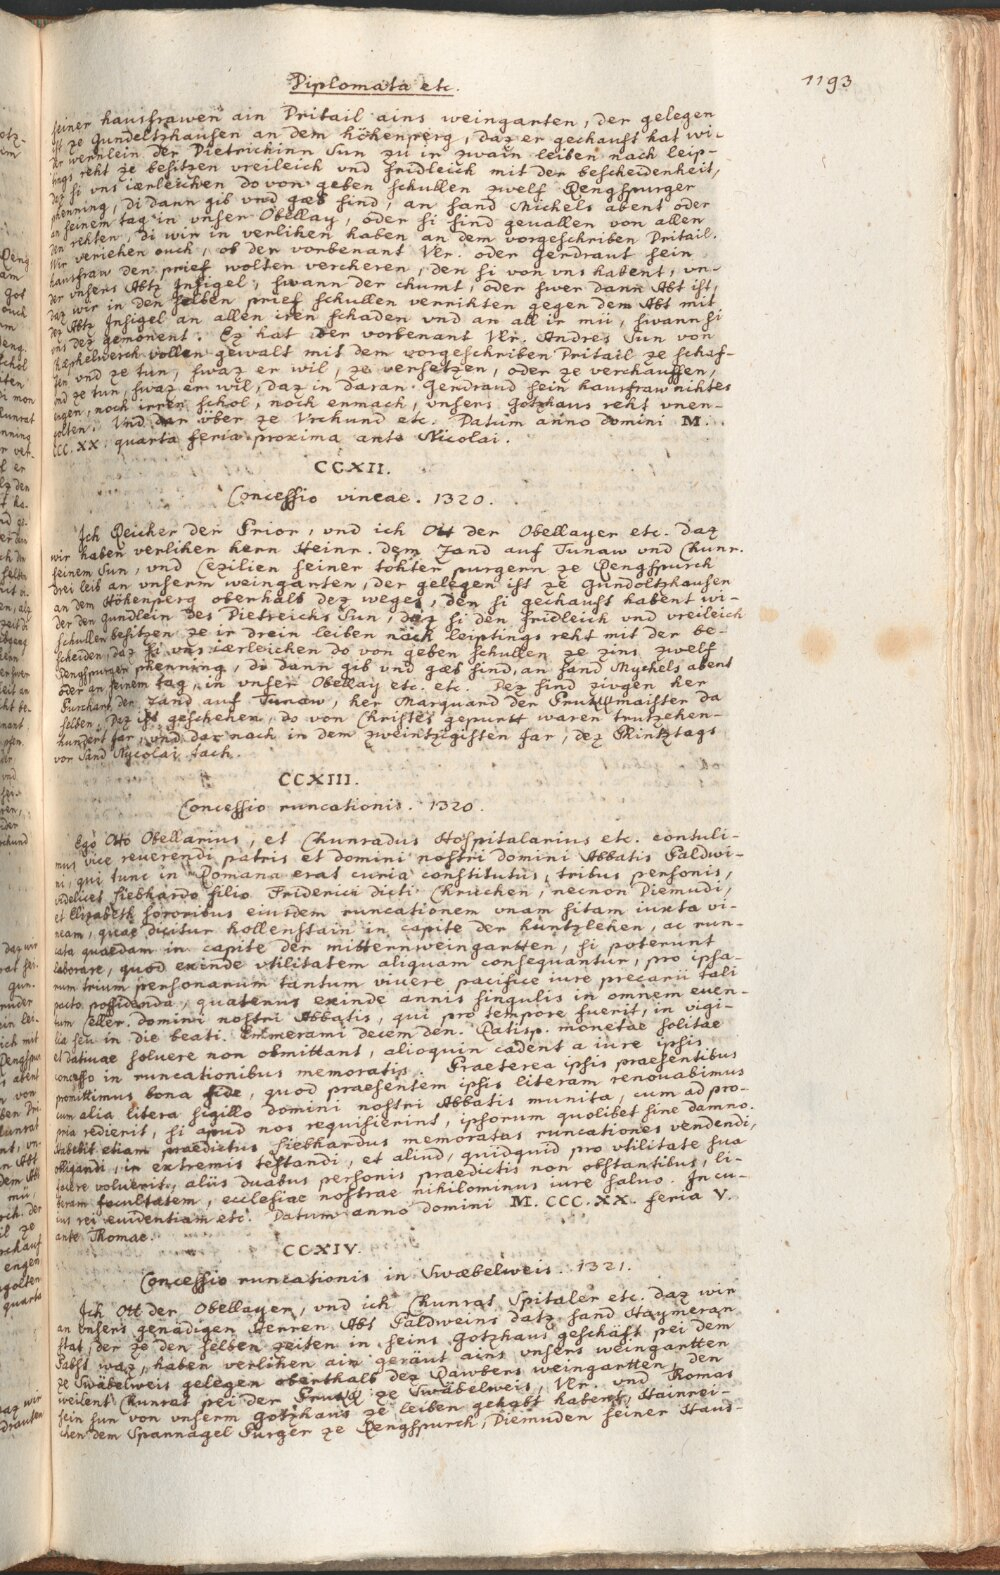 Diplomata etc.
1193
seiner hausfrawen ain Dritail ains weingarten, der gelegen
ist ze Gundeltzhausen an dem höhenperg, daz er gechauft hat wi-
der wernlein der Dietrichinn Sun zu ir zwain leiben nach leip-
tings reht ze besitzen vreileich und fridleich mit der bescheidenheit,
daz si uns iaerleichen do von geben schullen zwelf Rengspurger
phenning, di dann gib und gaeb sind, an sand Michels abent oder
an seinem tag in unser Obellay, oder si sind gevallen von allen
den rehten, di wir in verlihen haben an dem vorgeschriben Dritail.
Wir veriehen ouch, ob der vorbenant Ulr. oder Gerdraut sein
hausfraw den prief wolten vercheren, den si von uns habent, un-
der unsers Abtz Insigel, swann der chumt, oder swer dann Abt ist,
daz wir in den selben prief schullen verrihten gegen dem Abt mit
dez Abtz Insigel an allen iren schaden und an all ir mü, swann si
uns dez gemonent. Ez hat der vorbenant Ulr. Andres Sun von
vollen gewalt mit dem vorgeschriben Dritail ze schaf-
fen und ze tun, swaz er wil, ze versetzen, oder ze verchauffen,
und ze tun, swaz er wil, daz in daran Gerdraud sein hausfraw nihtes
engen, noch irren schol, noch enmach, unsers Gotzhaus reht unen-
golten. Und dar über ze Urchund etc. Datum anno domini M.
CCC. XX. quarta feria proxima ante Nicolai.
CCXII.
Concessio vineae. 1320.
Ich Reicher der Prior, und ich Ott der Obellayer etc. daz
wir haben verlihen hern Heinr. dem Zand auf Tunaw und Chunr.
seinem Sun, und Cezilien seiner tohter purgern ze Rengspurch
drei leib an unserm weingarten, der gelegen ist ze Gundoltzhausen
an dem Höhenperg oberhalb dez weges, den si gechauft habent wi-
der den Gundlein des Dietreichs Sun, daz si den fridleich und vreileich
schullen besitzen ze ir drein leiben nach leiptings reht mit der be-
scheiden, daz si uns iaerleichen do von geben schullen ze zins zwelf
Rengspurger phenning, di dann gib und gaeb sind, an sand Mychels abent
oder an seinem tag, in unser Obellay etc. etc. Dez sind zivgen her
Purchart der Zand auf Tunaw, her Marquard der Prukkmaister da
selben. Dez ist geschehen, do von Christes gepurtt waren trutzehen-
hundert Jar, und dar nach in dem zweintzigisten Jar, dez Phintztags
vor Sand Nycolai tach.
CCXIII.
Concessio runcationis. 1320.
Ego Otto Obellarius, et Chunradus Hospitalarius etc. contuli-
mus vice reverendi patris et domini nostri domini Abbatis Baldwi-
ni, qui tunc in Romana erat curia constitutus, tribus personis,
videlicet Liebhardo filio Friderici dicti Chriechen, necnon Diemudi,
et Elizabeth sororibus eiusdem runcationem unam sitam iuxta vi-
neam, quae dicitur hollenstain in capite der huntzlehen, ac run-
cata quaedam in capite der mitternweingartten, si poterunt
laborare, quod exinde utilitatem aliquam consequantur, pro ipsa-
rum trium personarum tantum vivere pacifice iure precarii tali
pacto possidenda, quatenus exinde annis singulis in omnem even-
tum Celler. domini nostri Abbatis, qui pro tempore fuerit, in vigi-
lia seu in die beati Emmerami decem den. Ratisp. monetae solitae
et dativae solvere non obmittant, alioquin cadent a iure ipsis
concesso in runcationibus memoratis. Praeterea ipsis praesentibus
promittimus bona fide, quod praesentem ipsis literam renovabimus
cum alia litera sigillo domini nostri Abbatis munita, cum ad pro-
pria redierit, si apud nos requisierint, ipsorum quolibet sine damno.
Habebit etiam praedictus Liebhardus memoratas runcationes vendendi,
obligandi, in extremis testandi, et aliud, quidquid pro utilitate sua
facere voluerit, aliis duabus personis praedictis non obstantibus, li-
beram facultatem, ecclesiae nostrae nihilominus iure salvo. In cu-
ius rei evidentiam etc. Datum anno domini M. CCC. XX. feria V.
ante Thomae.
CCXIV.
Concessio runcationis in Swaebelweis. 1321.
Ich Ott der Obellayer, und ich Chunrat Spitaler etc. daz wir
an unsers genädigen Herren Abt Baldweins datz sand Haymeran
stat, der ze den selben zeiten in seins Gotzhaus geschäft pei dem
Babst waz, haben verlihen ain geräut ains unsers weingartten
ze Swäbelweis gelegen oberthalb dez Rawbers weingartten, den
weilent Chunrat pei der Prukk ze Swäbelweis, Ulr. und Thomas
sein sun von unserm gotzhaus ze leiben gehabt habent, Hainrei-
chen dem Spannagel Purger ze Rengspurch, Diemuden seiner Haus-